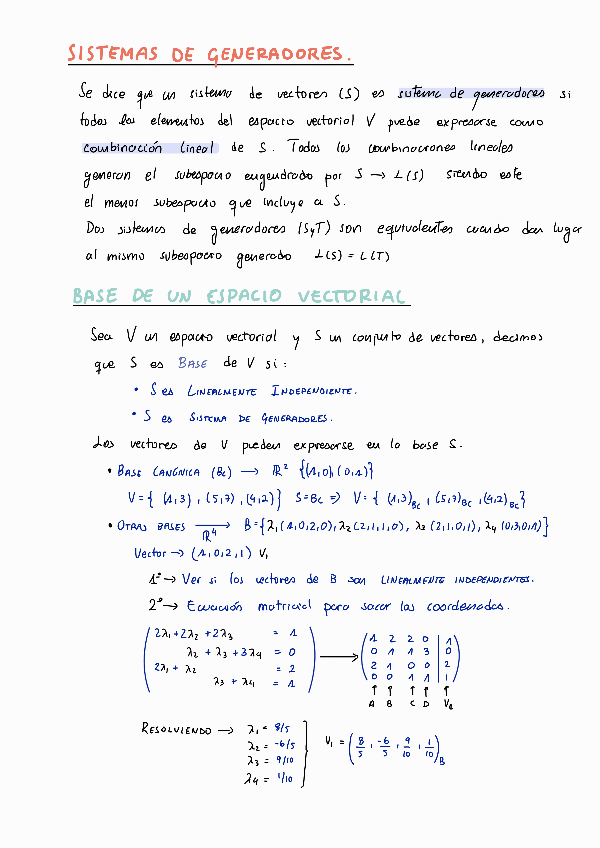 SISTEMAS DE GENERADORES.
Se dice que un sistema de vectores (S) es sistema de generadores si
todos los elementos del espacio vectorial V puede expresarse como
combinación lineal de S. Todas las combinaciones lineales
generan el subespacio engendrado por S → L(S) siendo este
el menos subespacio que incluye a S.
Dos sistemas de generadores (S y T) son equivalentes cuando dan lugar
al mismo subespacio generado L(S) = L(T)
BASE DE UN ESPACIO VECTORIAL
Sea V un espacio vectorial y S un conjunto de vectores, decimos
que S es BASE de V si:
• S es LINEALMENTE INDEPENDIENTE.
• S es SISTEMA DE GENERADORES.
Los vectores de V pueden expresarse en la base S.
• BASE CANÓNICA (Bc) → ℝ² {(1,0),(0,1)}
V = { (1,3), (5,7), (4,2)} S=Bc => V = { (1,3)Bc, (5,7)Bc, (4,2)Bc }
• OTRAS BASES → ℝ⁴ B={λ₁(1,0,2,0), λ₂(2,1,1,0), λ₃(2,1,0,1), λ₄(0,3,0,1)}
Vector → (1,0,2,1) V₁
1º → Ver si los vectores de B son LINEALMENTE INDEPENDIENTES.
2º → Ecuación matricial para sacar las coordenadas.
2λ₁+2λ₂+2λ₃ = 1
λ₂ + λ₃ + 3λ₄ = 0
2λ₁ + λ₂ = 2
λ₃ + λ₄ = 1
→
1 2 2 0 | 1
0 1 1 3 | 0
2 1 0 0 | 2
0 0 1 1 | 1
↑ ↑ ↑ ↑ ↑
A B C D
RESOLVIENDO → λ₁ = 8/5
λ₂ = -6/5
λ₃ = 9/10
λ₄ = 1/10
V₁ = (8/5, -6/5, 9/10, 1/10)B